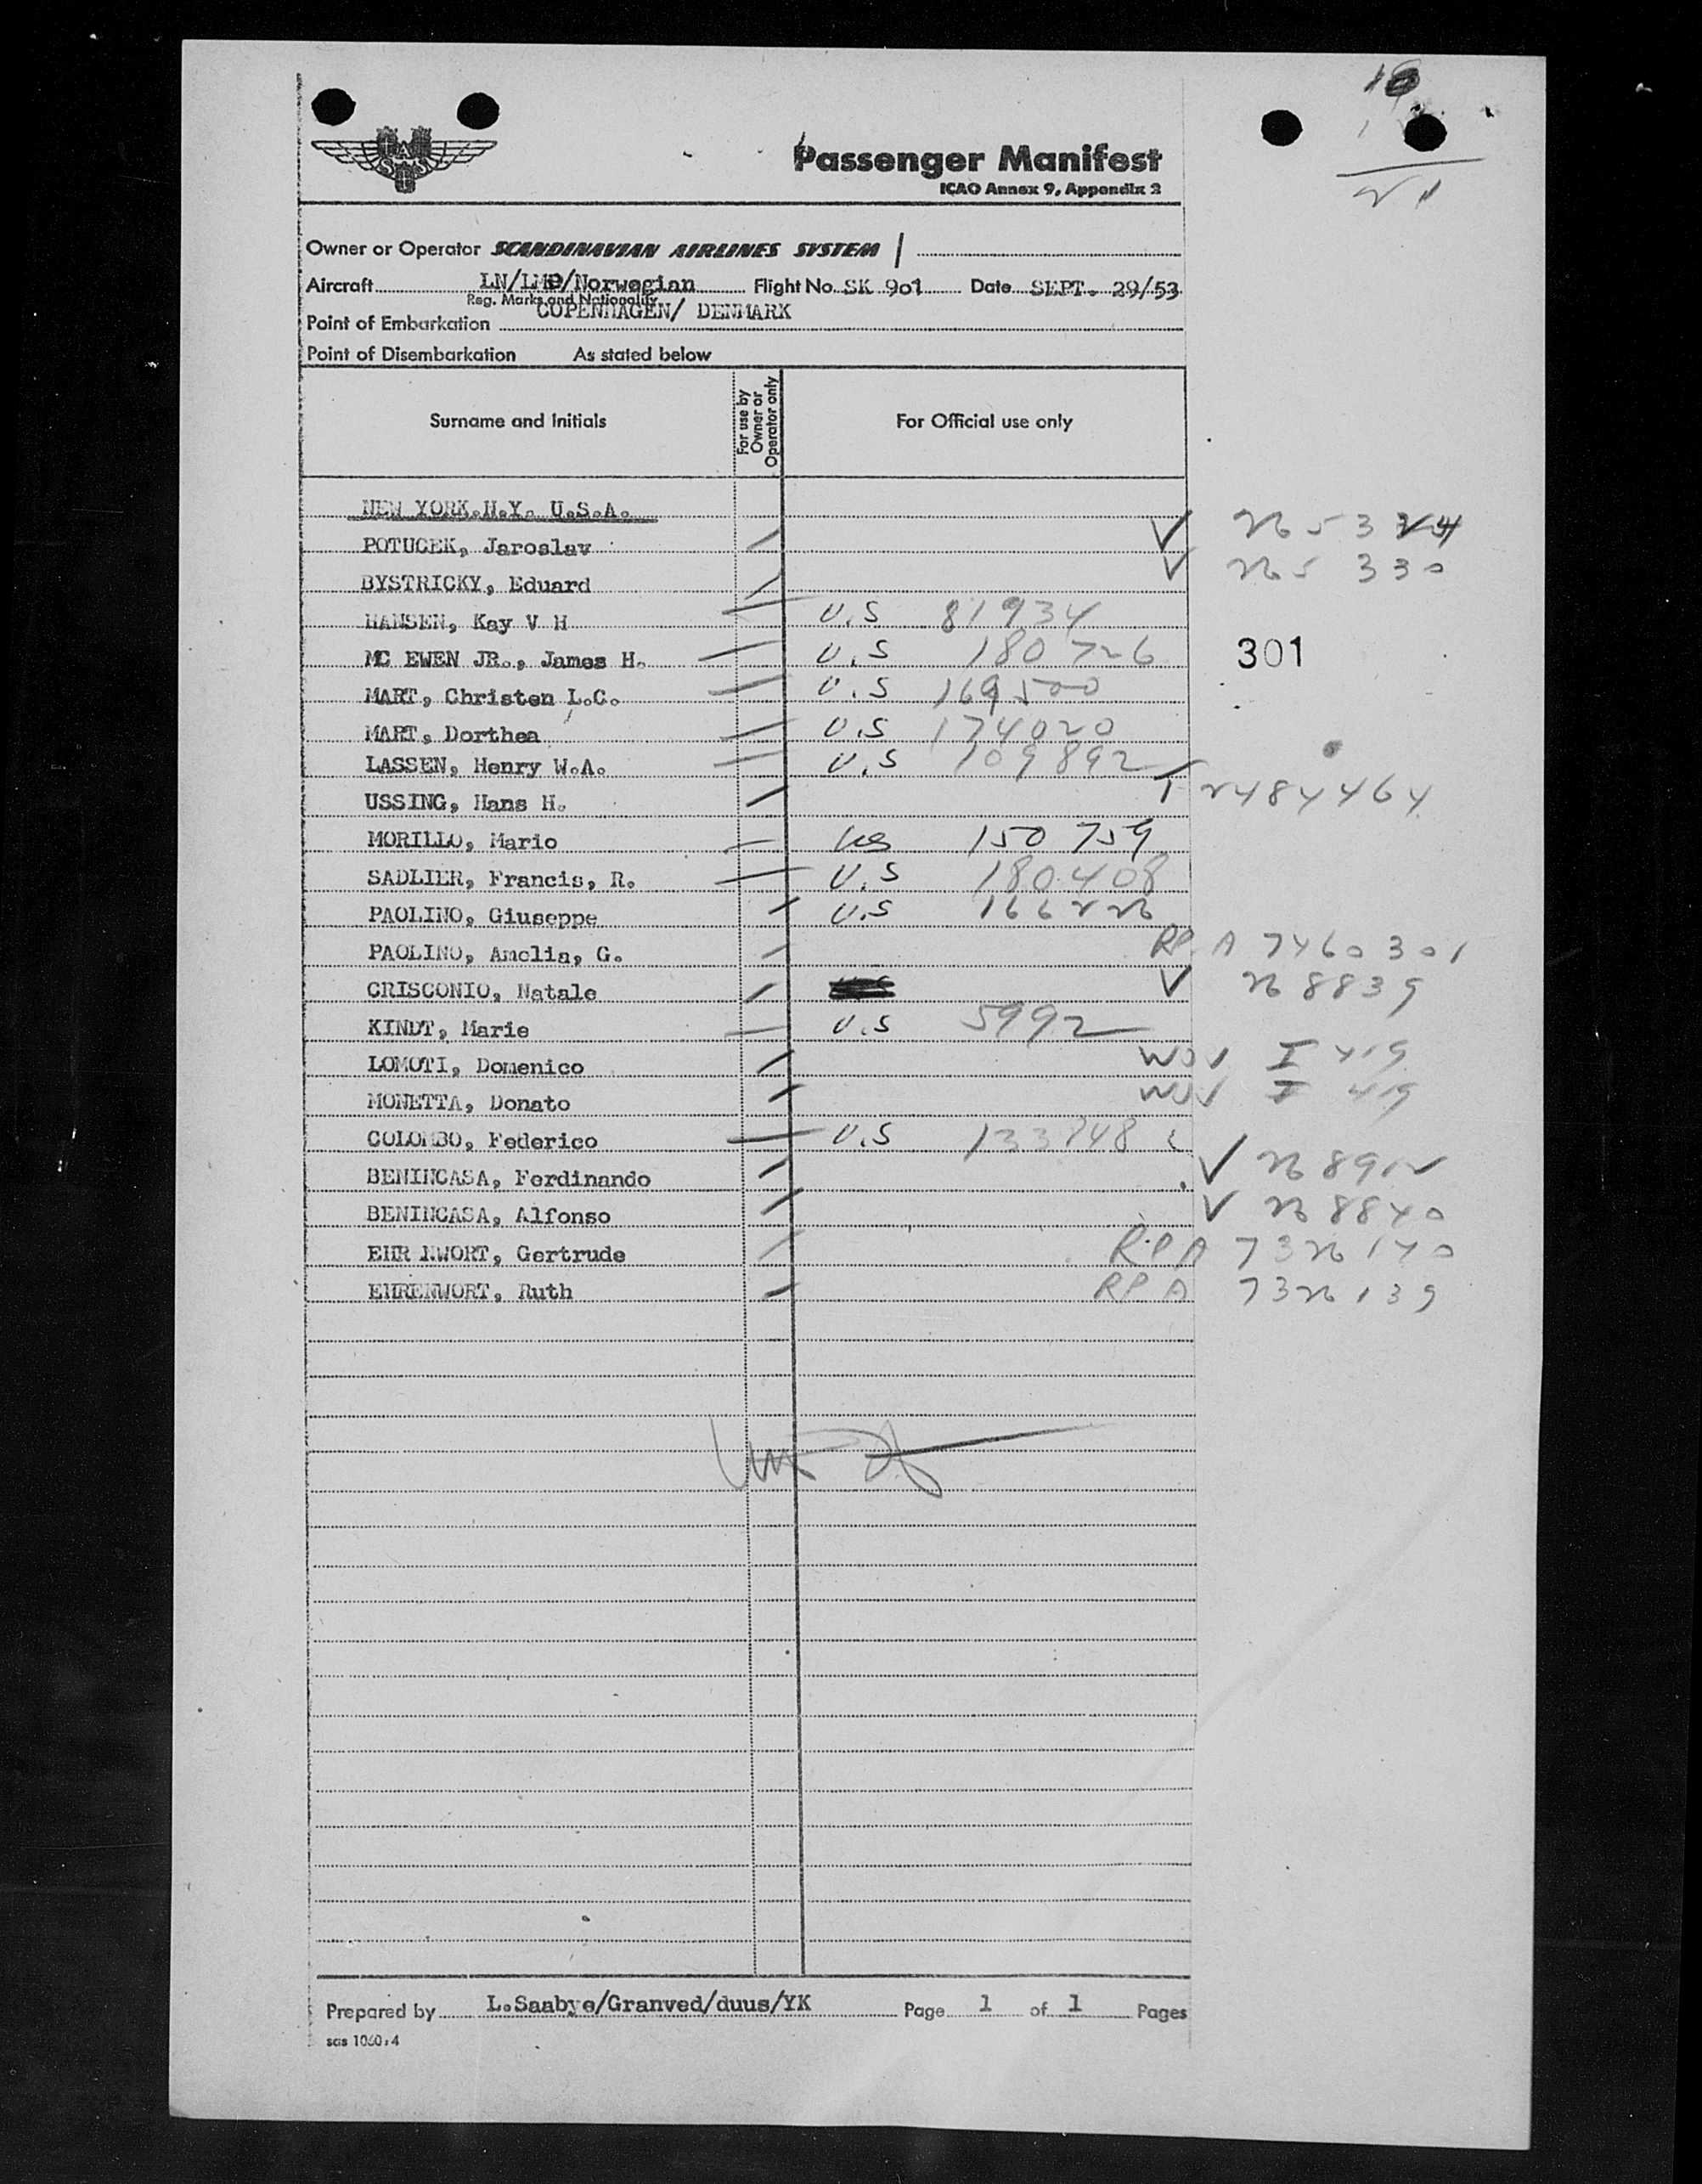 SAS
Passenger Manifest
ICAO Annex 9, Appendix 2
Owner or Operator SCANDINAVIAN AIRLINES SYSTEM
Aircraft LN/LMP/Norwegian Flight No. SK 901 Date SEPT. 29/53
Reg. Marks and Nationality
Point of Embarkation COPENHAGEN/ DENMARK
Point of Disembarkation As stated below
Surname and Initials For use by Owner or Operator only For Official use only
NEW YORK.N.Y. U.S.A.
POTUCEK, Jaroslav V
BYSTRICKY, Eduard V 265 330
HANSEN, Kay V H U.S 81934
MC EWEN JR., James H. U.S 180726 301
MART, Christen L.C. U.S 169500
MART, Dorthea U.S 174020
LASSEN, Henry W.A. U.S 109892
USSING, Hans H. T 2484464
MORILLO, Mario US 150759
SADLIER, Francis, R. U.S 180408
PAOLINO, Giuseppe U.S 166226
PAOLINO, Amelia, G. RP A 7460301
CRISCONIO, Natale V 268839
KINDT, Marie U.S 5992
LOMOTI, Domenico WOV I 419
MONETTA, Donato WOV I 419
COLOMBO, Federico U.S 133848
BENINCASA, Ferdinando V 268912
BENINCASA, Alfonso V 268840
EHR NWORT, Gertrude RP A 7326140
EHRENWORT, Ruth RP A 7326139
Prepared by L.Saabye/Granved/duus/YK Page 1 of 1 Pages
sas 1060:4